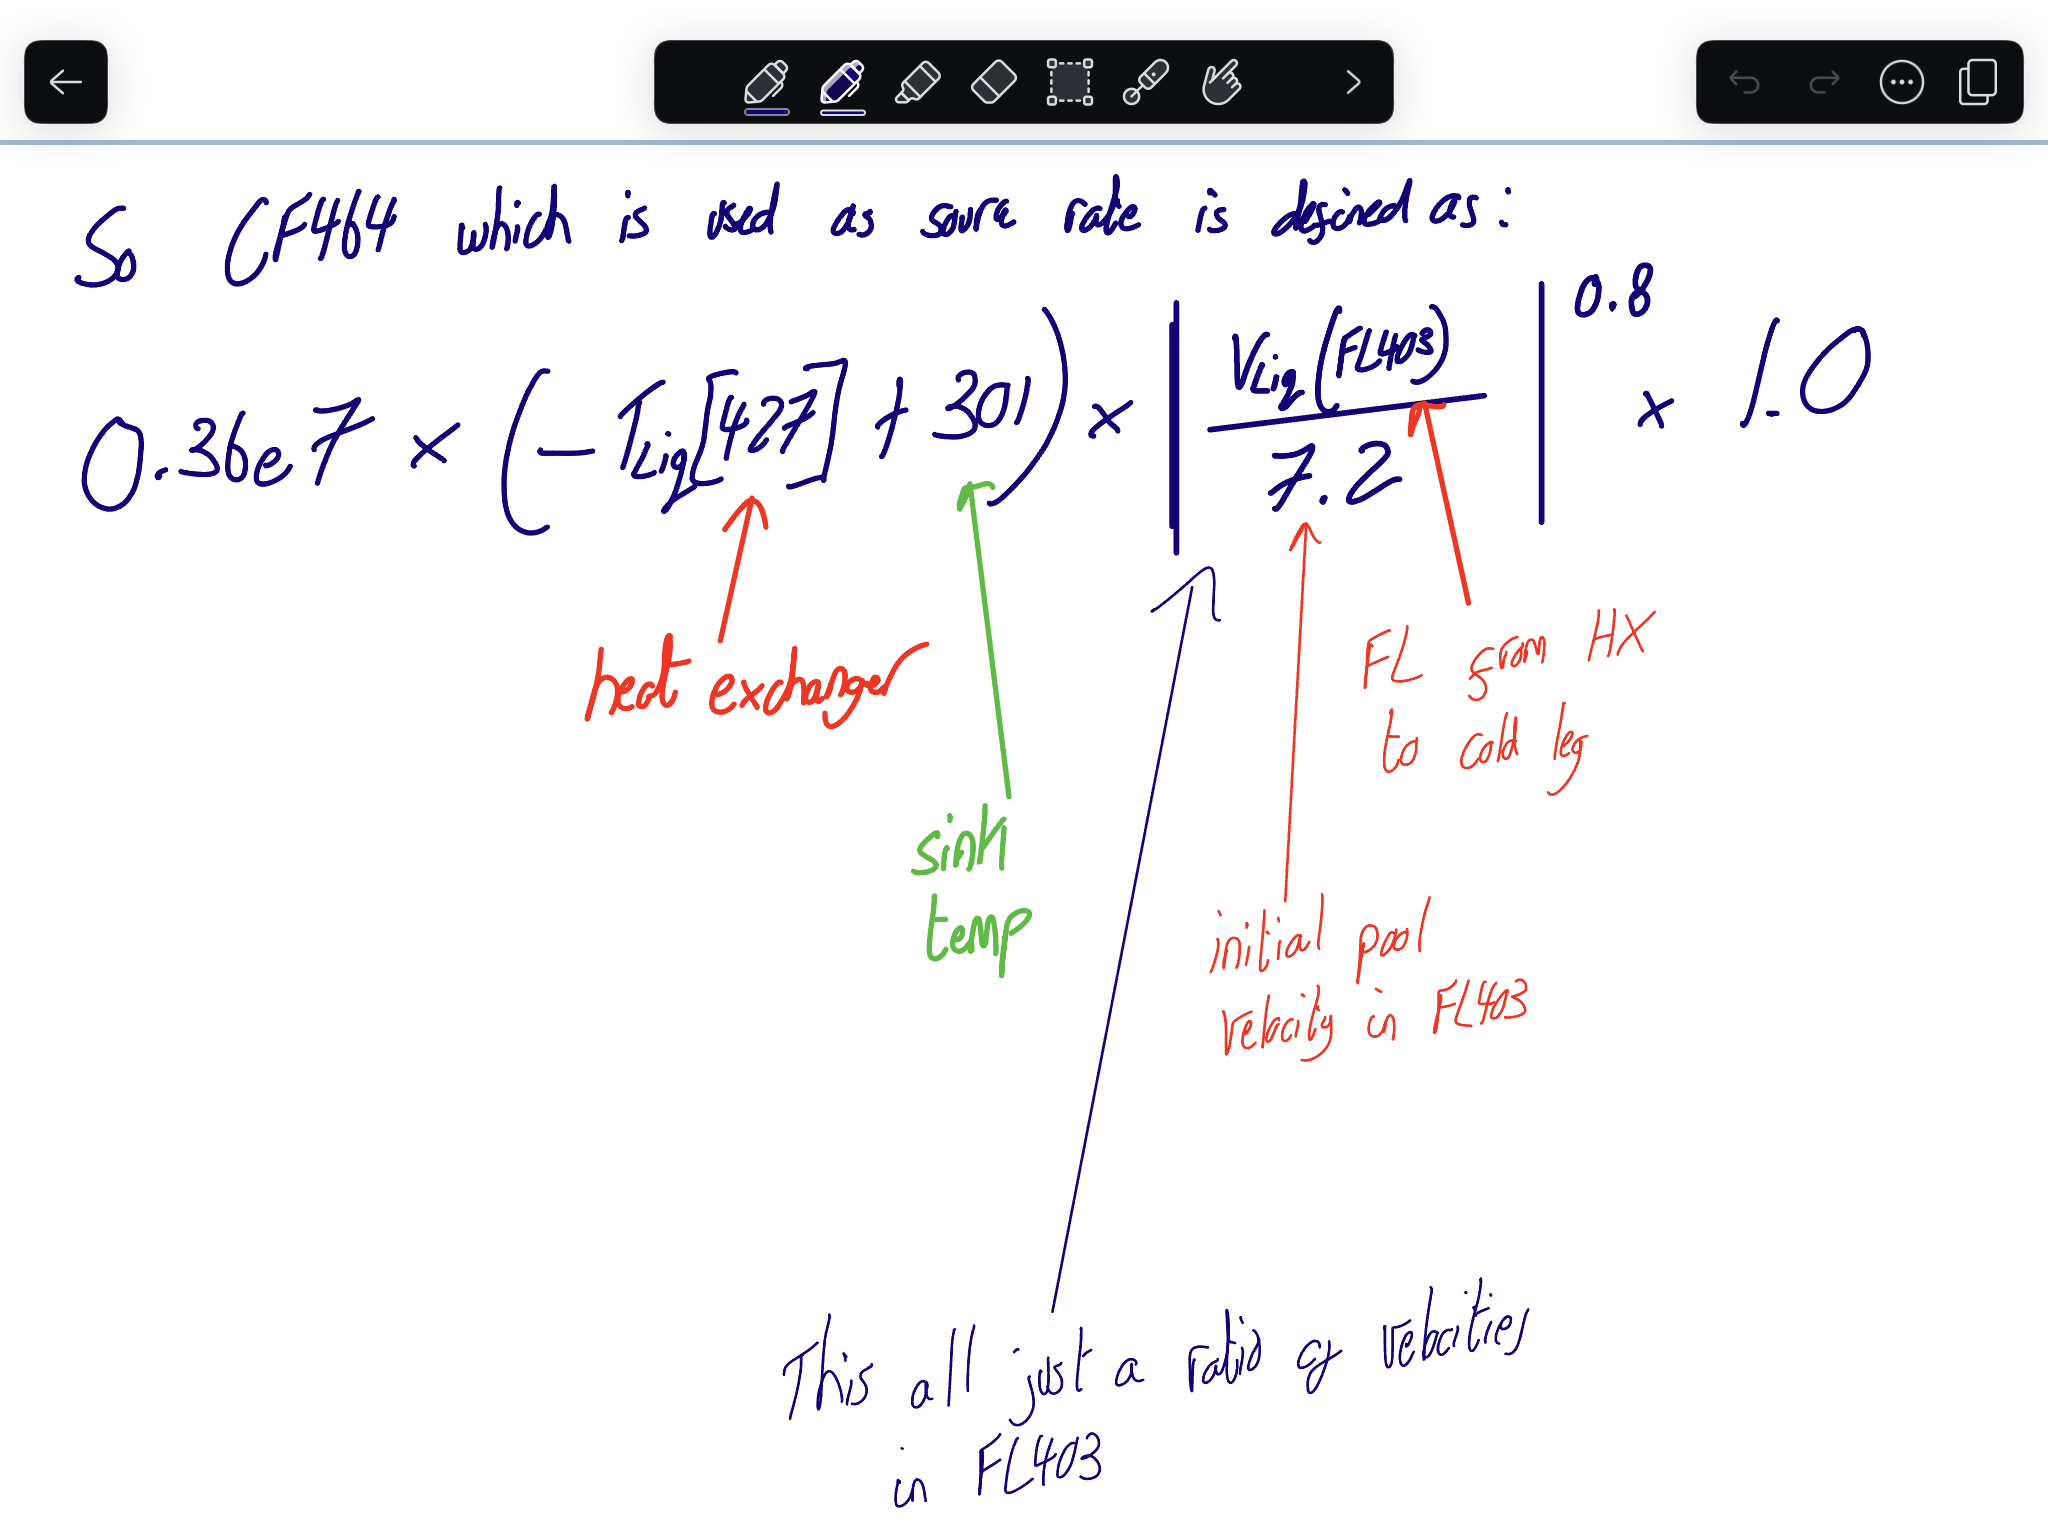 So CF464 which is used as source rate is defined as:
0.36e7 × (- TLiq[427] + 301) × | VLiq(FL403) / 7.2 |^0.8 × 1.0
heat exchanger
FL from HX
to cold leg
sink
temp
initial pool
velocity in FL403
This all just a ratio of velocities
in FL403